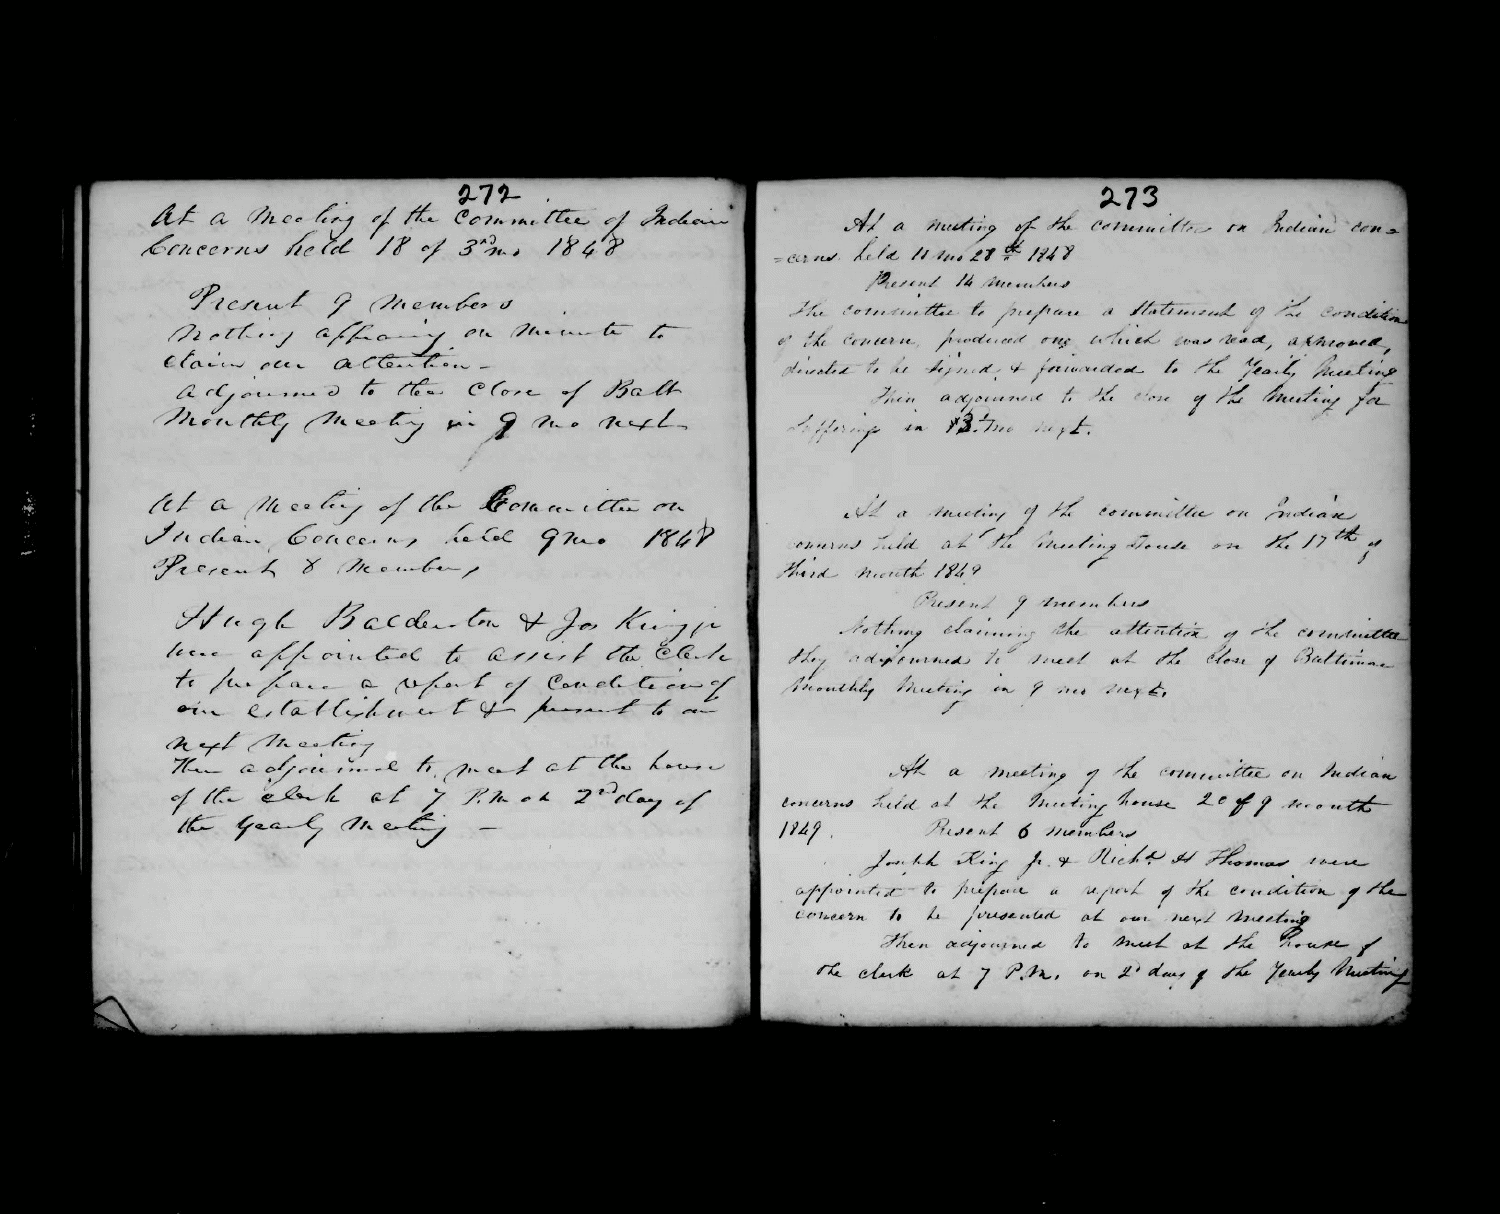 272
At a Meeting of the Committee of Indian
Concerns held 18 of 3rd mo 1848
Present 9 members
Nothing appearing on minute to
claim our attention -
adjourned to the close of Balt
Monthly Meeting in 9 mo next
At a Meeting of the Committee on
Indian Concerns held 9 mo 1848
Present 8 Members
Hugh Balderston & Jos King jr
were appointed to assist the Clerk
to prepare a report of Condition of
our establishment & present to our
next Meeting
Then adjourned to meet at the house
of the clerk at 7 P.M on 2nd day of
the Yearly Meeting -
273
At a meeting of the committee on Indian con=
=cerns held 11 mo 28th 1848
Present 14 members
The committee to prepare a Statement of the condition
of the concern, produced one which was read, approved,
directed to be signed & forwarded to the Yearly Meeting
Then adjourned to the close of the Meeting for
Sufferings in 3 mo next.
At a meeting of the committee on Indian
concerns held at the Meeting House on the 17th of
third month 1849
Present 9 members
Nothing claiming the attention of the committee
they adjourned to meet at the close of Baltimore
Monthly Meeting in 9 mo next.
At a meeting of the committee on Indian
concerns held at the Meeting house 20 of 9 month
1849. Present 6 members
Joseph King Jr. & Richd. H Thomas were
appointed to prepare a report of the condition of the
concern to be presented at our next meeting
Then adjourned to meet at the house of
the clerk at 7 P.M. on 2d day of the Yearly Meeting